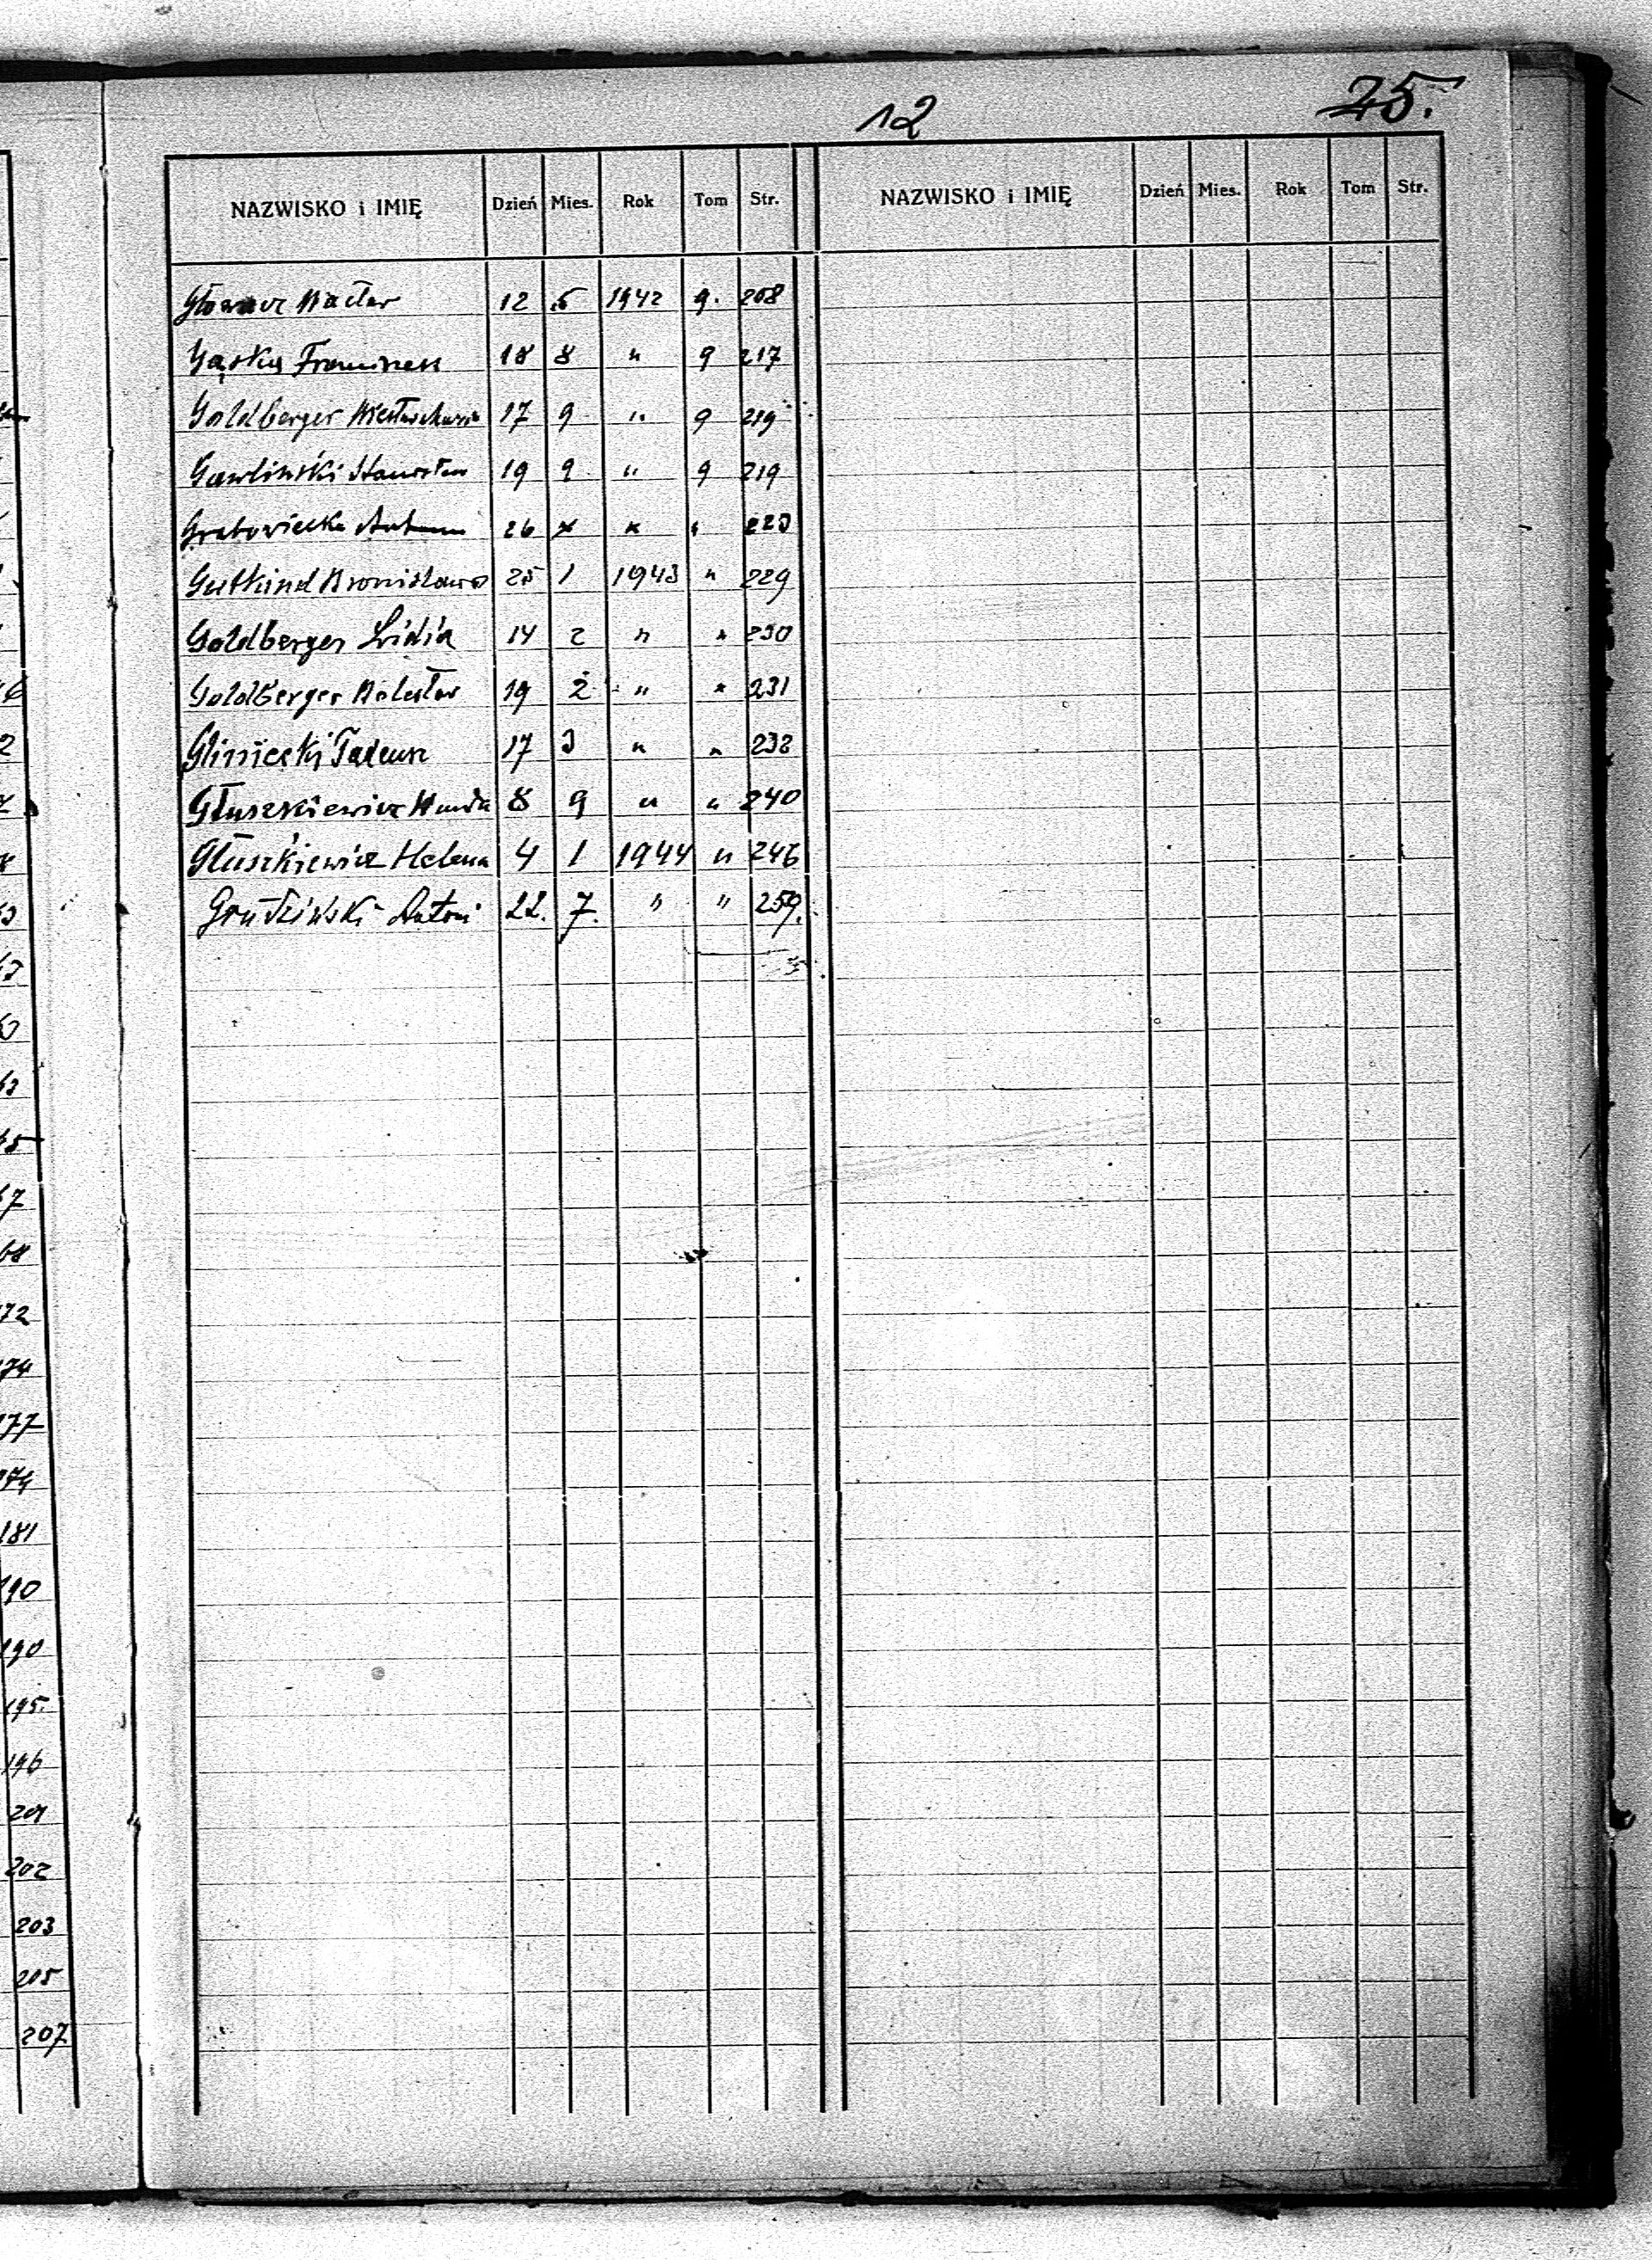 12
25.
NAZWISKO i IMIĘ Dzień Mies. Rok Tom Str. NAZWISKO i IMIĘ Dzień Mies. Rok Tom Str.
Wacław 12 5 1942 9. 208
Gąska Franciszek 18 8 " 9 217
Goldberger 17 9 " 9 219
Gawliński Stanisław 19 9 " 9 219
Grabowiecka 26 x " " 223
Gutkind Bronisława 25 1 1943 " 229
Goldberger Lidia 14 2 " " 230
Goldberger Bolesław 19 2 " " 231
Gliniecki Tadeusz 17 3 " " 232
Głuszkiewicz Wanda 8 9 " " 240
Głuszkiewicz Helena 4 1 1944 " 246
Grudziński Antoni 22. 7. " " 259.
172
174
177
174
181
190
190
195.
196
201
202
203
205
207